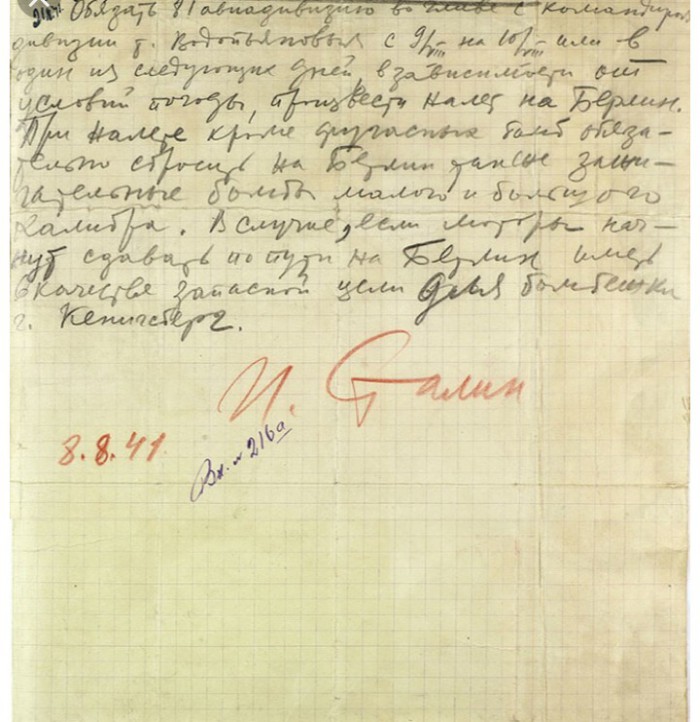 Обязать 81 авиадивизию во главе с командиром
дивизии т. Водопьяновым с 9/VIII на 10/VIII или в
один из следующих дней, в зависимости от
условий погоды, произвести налет на Берлин.
При налете кроме фугасных бомб обяза-
тельно сбросить на Берлин также зажи-
гательные бомбы малого и большого
калибра. В случае, если моторы нач-
нут сдавать по пути на Берлин иметь
в качестве запасной цели для бомбежки
г. Кенигсберг.
И. Сталин
8.8.41
Вх. № 216а